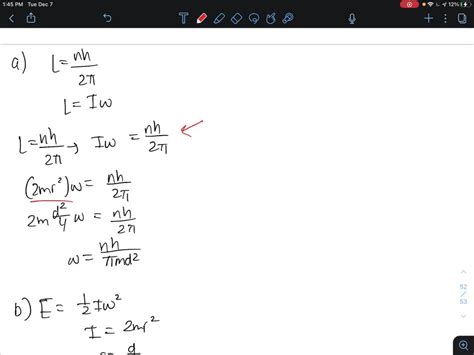 1:45 PM Tue Dec 7
12%
a) L = nh/2π
L = Iω
L = nh/2π → Iω = nh/2π
(2mr²)ω = nh/2π
2m d²/4 ω = nh/2π
ω = nh/πmd²
b) E = 1/2 Iω²
I = 2mr²
d
52
53